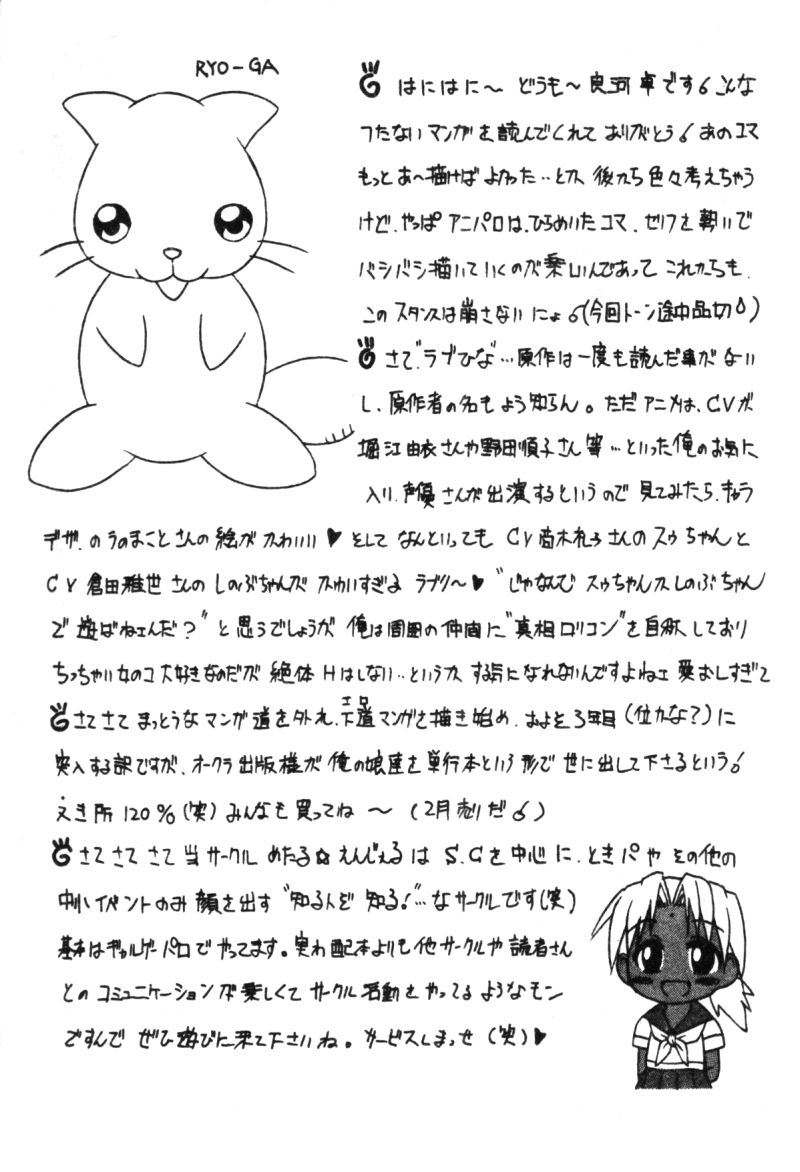 RYO-GA
はにはに～ どうも～良河卓です こんな
つたないマンガを読んでくれてありがとう あのコマ
もっとあ～描けばよかった…とか 後から色々考えちゃう
けど、やっぱアニパロは、ひらめいたコマ、セリフを勢いで
バシバシ描いていくのが楽しいんであって これからも、
このスタンスは崩さないにょ(今回トーン途中品切)
さて"ラブひな"…原作は一度も読んだ事がない
し、原作者の名もよう知らん。ただアニメは、CVが
堀江由衣さんや野田順子さん等…といった俺のお気に
入り声優さんが出演するというので見てみたら、キャラ
デザ、のうのまことさんの絵がかわいい♥ そして なんといっても CV高木礼子さんのスゥちゃんと
CV倉田雅世さんのしのぶちゃんがかわいすぎるラブリ～♥ "じゃなんでスゥちゃんかしのぶちゃん
で遊ばねェんだ?"と思うでしょうが 俺は周囲の仲間に"真相ロリコン"を自称しており
ちっちゃい女のコ大好きなのだが 絶体Hはしない…というか する気になれないんですよねェ 愛おしすぎて
さてさて まっとうなマンガ道を外れ、下道(エロ)マンガを描き始め、およそ3年目(位かな?)に
突入する訳ですが、オークラ出版様が俺の娘達を単行本という形で世に出して下さるという
えき所120%(笑)みんなも買ってね～(2月売りだ)
さてさてさて当サークルめたる☆えんじぇるはS.Cを中心に、ときパやその他の
中小イベントのみ顔を出す"知る人ぞ知る!"…なサークルです(笑)
基本はギャルゲーパロでやってます。実わ配本よりも他サークルや読者さん
とのコミュニケーションが楽しくてサークル活動をやってるようなモン
ですんで ぜひ遊びに来て下さいね。サービスしまっせ(笑)♥